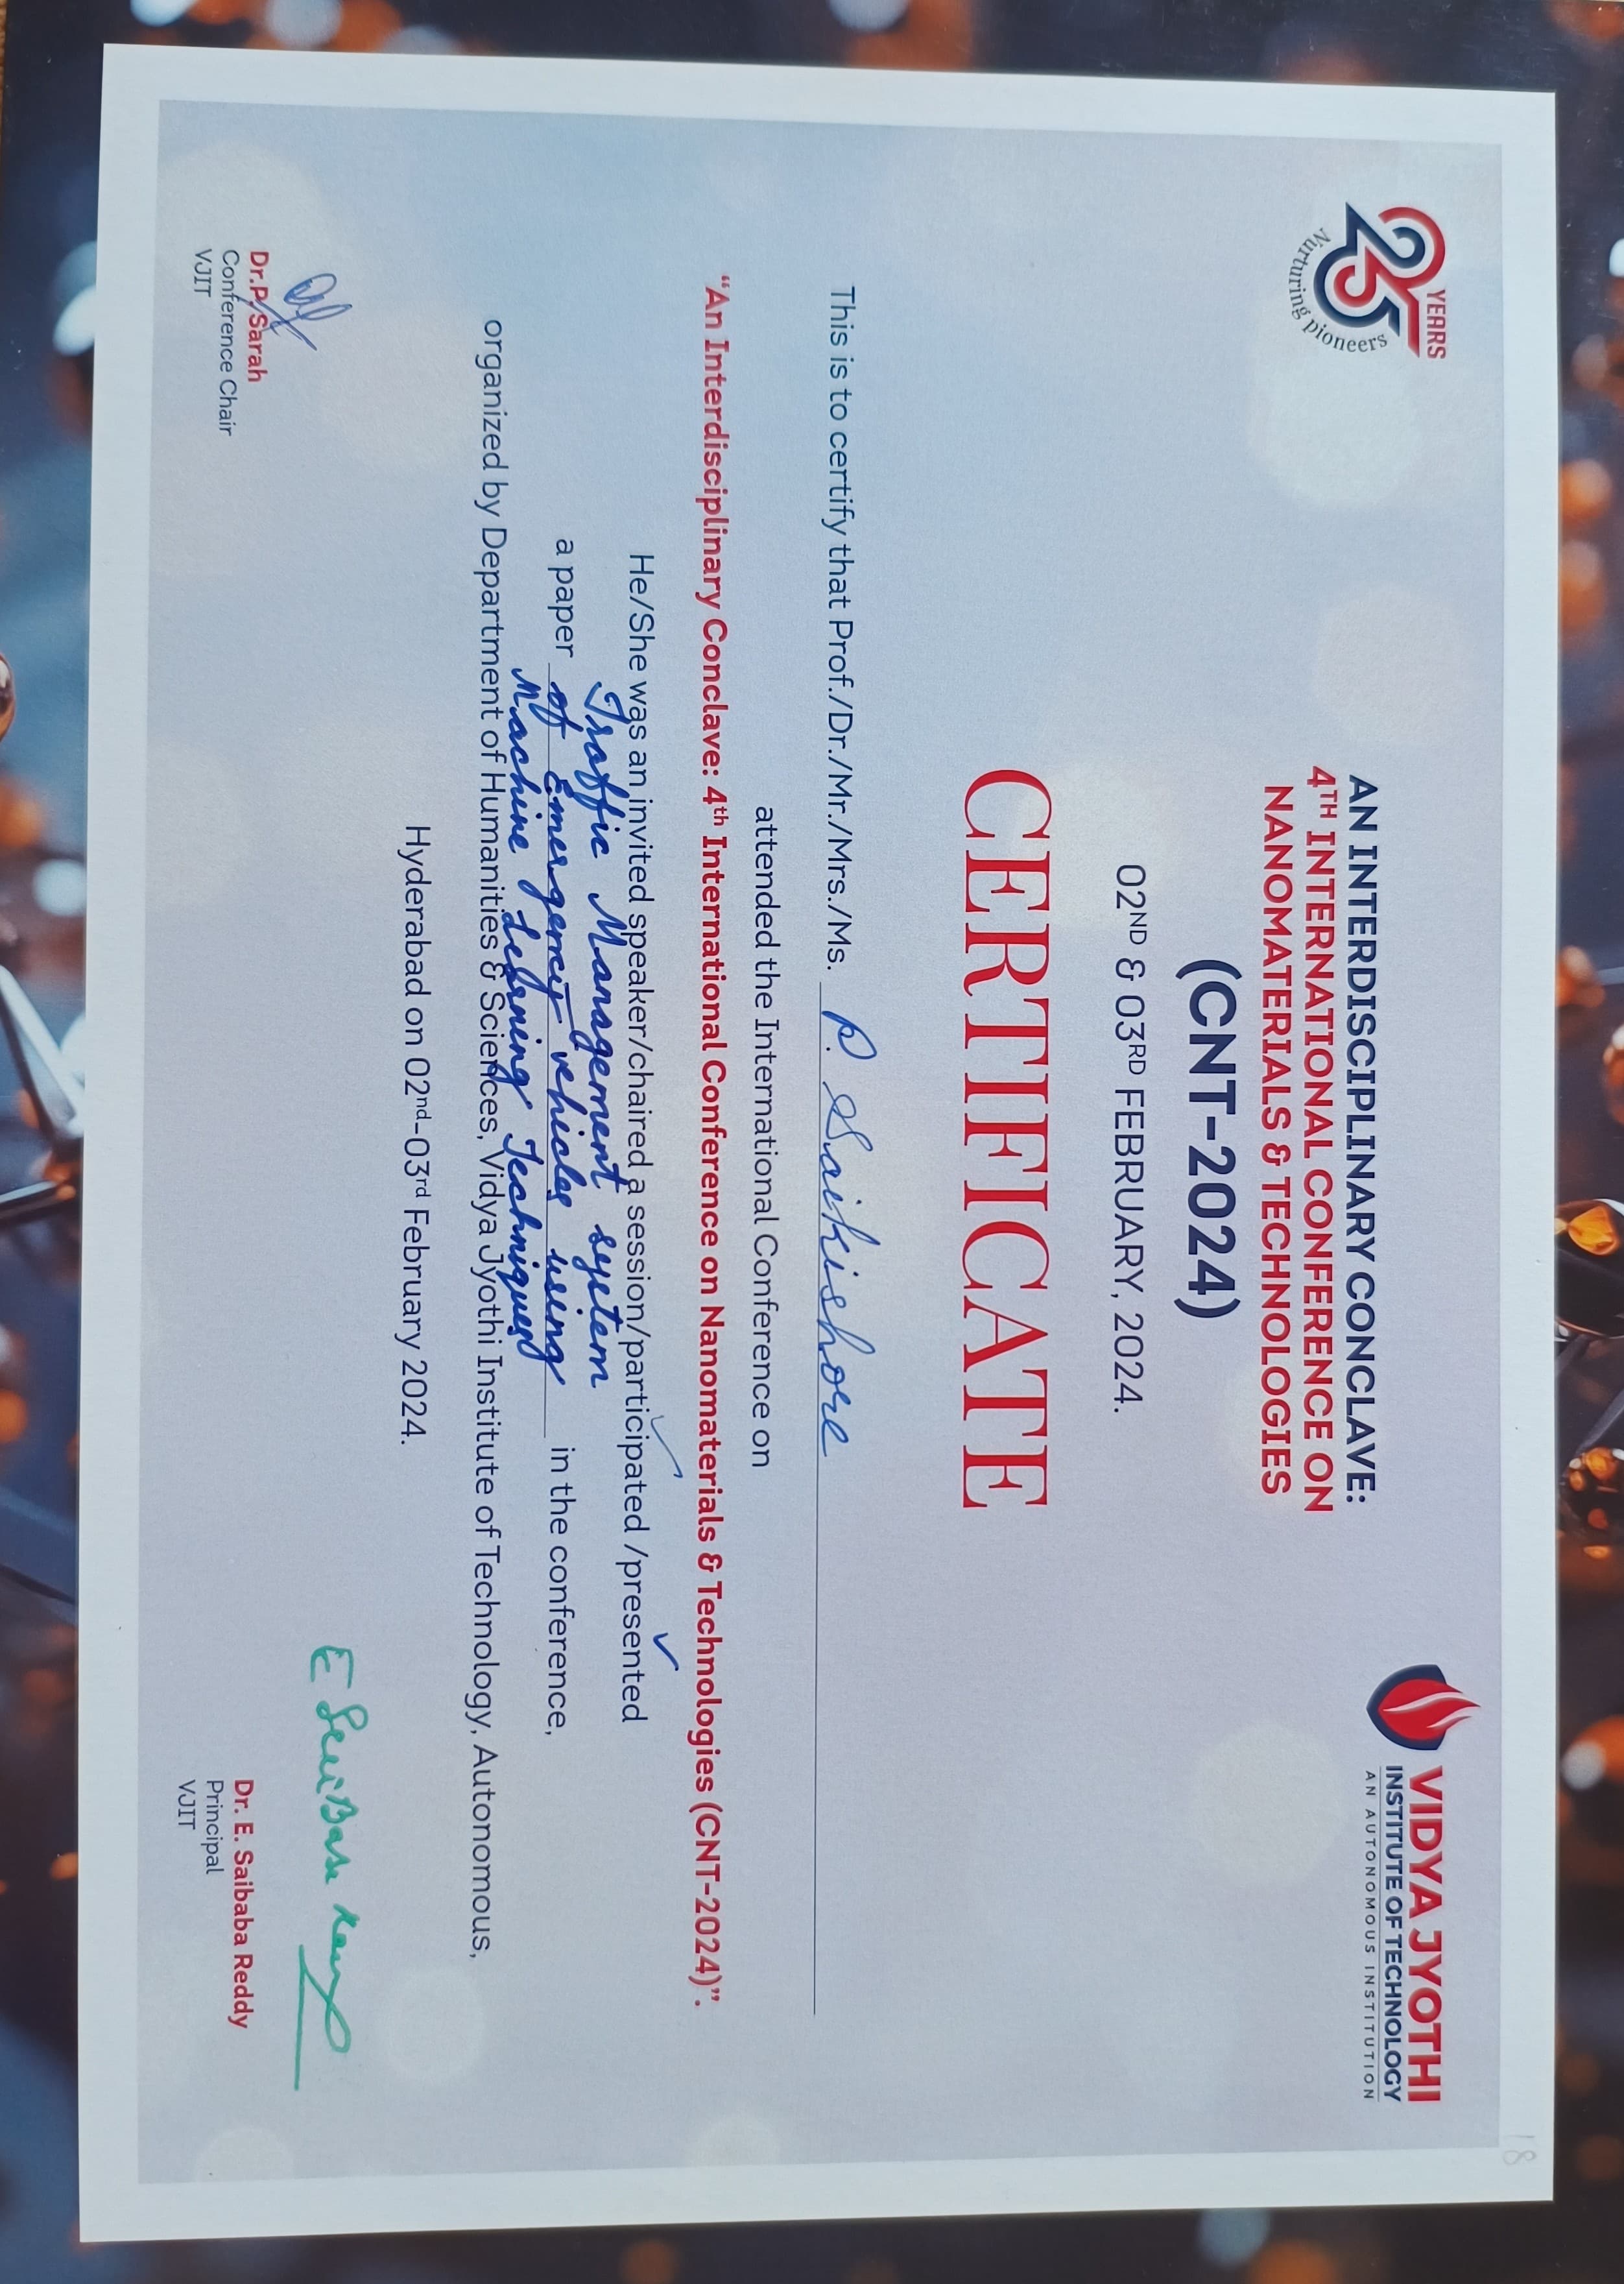 25 YEARS
Nurturing pioneers
VIDYA JYOTHI
INSTITUTE OF TECHNOLOGY
AN AUTONOMOUS INSTITUTION
18
AN INTERDISCIPLINARY CONCLAVE:
4TH INTERNATIONAL CONFERENCE ON
NANOMATERIALS & TECHNOLOGIES
(CNT-2024)
02ND & 03RD FEBRUARY, 2024.
CERTIFICATE
This is to certify that Prof./Dr./Mr./Mrs./Ms. P. Saikishore
attended the International Conference on
“An Interdisciplinary Conclave: 4th International Conference on Nanomaterials & Technologies (CNT-2024)”.
He/She was an invited speaker/chaired a session/participated /presented
Traffic Management system
a paper of Emergency vehicles using in the conference,
Machine learning Techniques
organized by Department of Humanities & Sciences, Vidya Jyothi Institute of Technology, Autonomous,
Hyderabad on 02nd-03rd February 2024.
Dr.P. Sarah
Conference Chair
VJIT
E Saibaba Reddy
Dr. E. Saibaba Reddy
Principal
VJIT